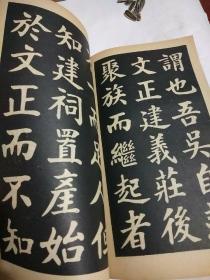 謂也吾吳自
文正建義莊後
聚族而繼起者
人但
知建祠置產始
於文正而不知